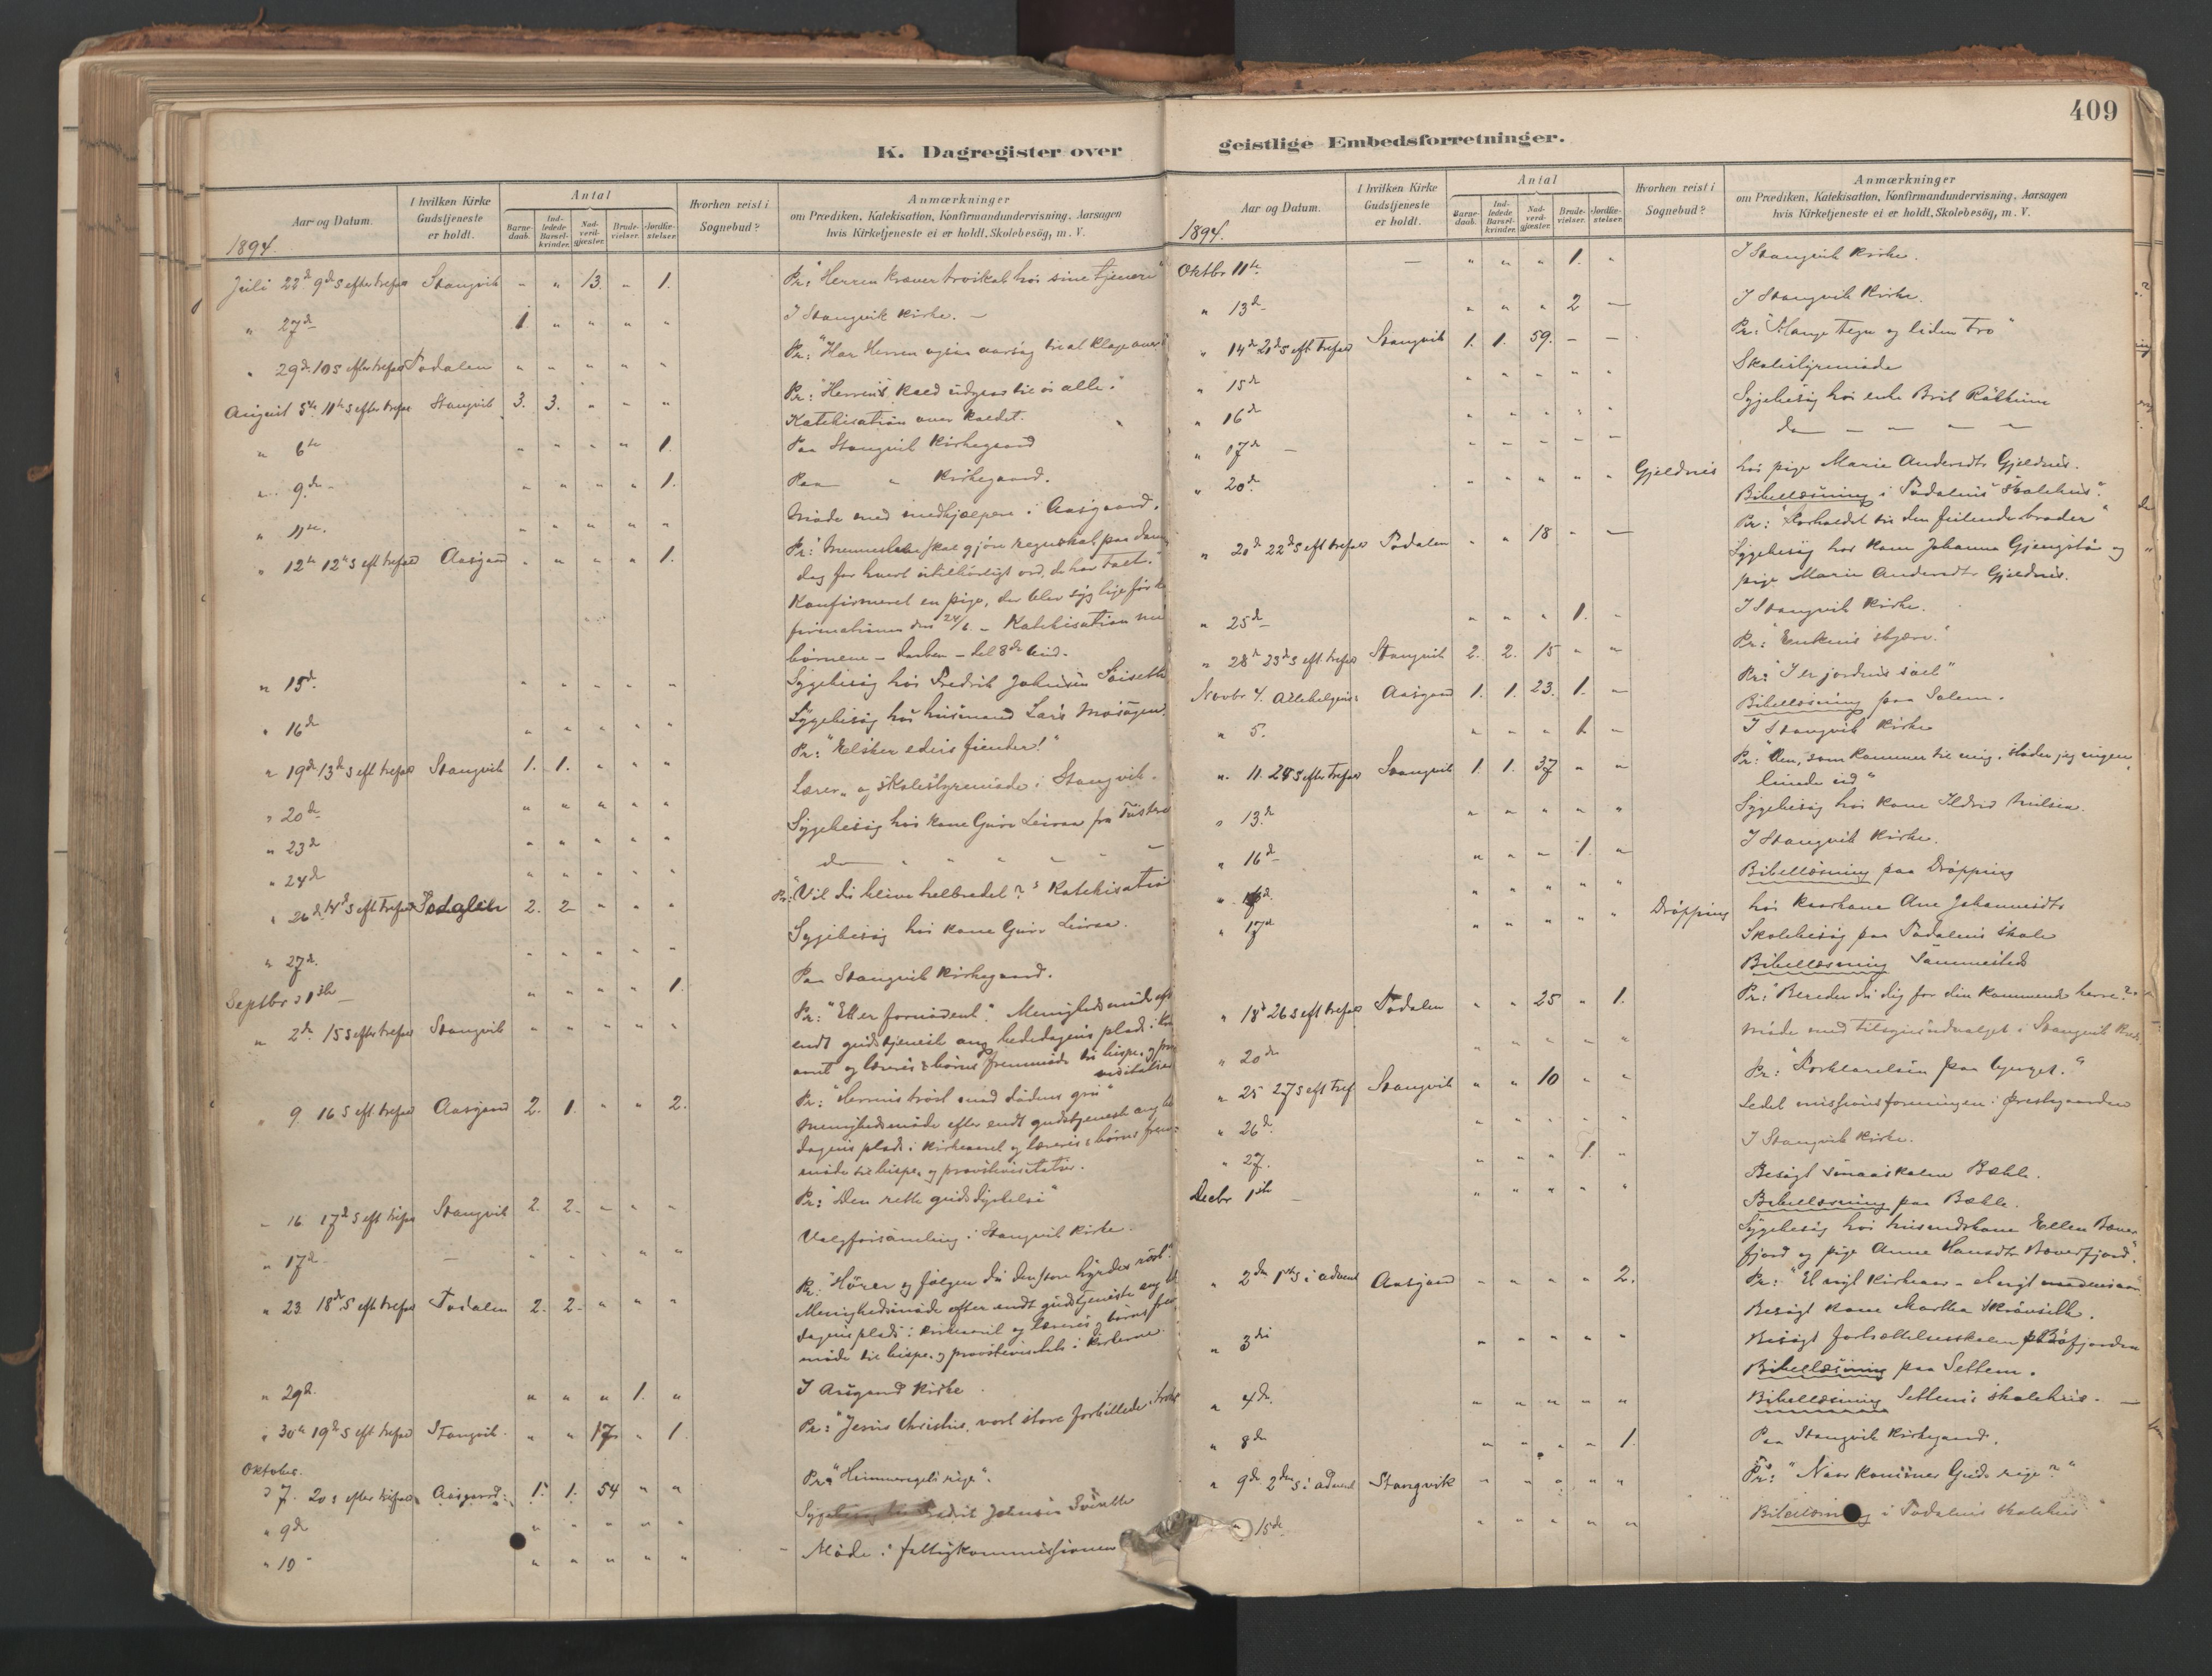 K. Dagregister over
Aar og Datum.
I hvilken Kirke Gudstjeneste er holdt.
Antal
Barne-daab.
Ind-ledede Barsel-kvinder.
Nad-verd-gjæster.
Brude-vielser.
Jordfæ-stelser.
Hvorhen reist i Sognebud?
Anmærkninger
om Prædiken, Katekisation, Konfirmandundervisning, Aarsagen
hvis Kirketjeneste ei er holdt, Skolebesög, m. V.
1894.
Juli 22d 9d S efter trefol Stangvik - " 13. - 1. Pr: "Herren kræver troskab hos sine tjenere"
" 27d 1. " " " " I Stangvik Kirke. -
" 29d. 10 S efter trefol Todalen " " " " " Pr: "Har Herren ogsaa aarsag til at klage over
August 5te 11te S efter trefol Stangvik 3. 3. " " " Pr: "Herrens kald udgaar til os alle."
Katekisation over kaldet.
" 6te " " " " 1. Paa Stangvik Kirkegaard
" 9de - " " " " 1. Paa " Kirkegaard.
" 11te. " " " " " Møde med medhjælpere i Aasgaard.
" 12te 12te S eft trefol Aasgaard " " " " 1. Pr: "Menneskene skal gjøre regnskab paa dom
dag for hvert utilbørligt ord, de har talt."
Konfirmeret en pige, der blev syg lige før
firmationen den 24/6. - Katekisation
børnene - daaben - det 8de bud.
" 15d. " " " " " Sygebesøg hos Fredrik Johnsen
" 16d " " " " " Sygebesøg hos husmand Lars
" 19de 13de S eft trefol Stangvik 1. 1. " " " Pr: "Elsker eders fiender!"
" 20d " " " " " Lærer- og skolestyremøde i Stangvik.
" 23d " " " " " Sygebesøg hos kone Guro fra
" 24d " " " " " do " " " " "
" 26d. 14d S eft trefol Todalen 2. 2 " " " Pr: "Vil du blive helbredet?" Katekisation
" 27d. " " " " " Sygebesøg hos kone Guro
Septbr 1ste " " " " 1. Paa Stangvik Kirkegaard.
" 2d. 15 S efter trefol Stangvik " " " " " Pr: "Et er fornødent". Menighedsmøde eft
endt gudstjeneste ang. bededagens plads i
aaret og læreres & børns fremmøde til bispe- og
visitatser
" 9. 16 S eft trefol Aasgaard 2. 1. " " 2. Pr: "Herrens trøst mod dødens gru"
Menighedsmøde efter endt gudstjeneste ang
dagens plads i kirkeaaret og læreres & børns frem-
møde til bispe- og provstevisitatser.
" 16 17d S eft trefol Stangvik 2. 2. " " " Pr: "Den rette gudsdyrkelse"
" 17d - " " " " " Valgforsamling i Stangvik Kirke.
" 23 18de S eft trefol Todalen 2. 2. " " " Pr: "Hører og følger du den store hyrdes røst".
Menighedsmøde efter endt gudstjeneste ang
dagens plads i kirkeaaret og læreres & børns frem
møde til bispe- og provstevisitats i kirkerne.
" 29d. " " " 1. " I Aasgaard Kirke.
" 30te 19d S eft trefol Stangvik. " " 17 " 1. Pr: "Jesus Christus, vort store forbillede i
Oktober.
" 7. 20 S efter trefol Aasgaard. 1. 1. 54 " " Pr: "Himmeriges rige".
" 9d " " " " " Fredrik Johnsen
" 10 " " " " " " Møde i fattigkommissionen
409
geistlige Embedsforretninger.
Aar og Datum.
I hvilken Kirke Gudstjeneste er holdt.
Antal
Barne-daab.
Ind-ledede Barsel-kvinder.
Nad-verd-gjæster.
Brude-vielser.
Jordfæ-stelser.
Hvorhen reist i Sognebud?
Anmærkninger
om Prædiken, Katekisation, Konfirmandundervisning, Aarsagen
hvis Kirketjeneste ei er holdt, Skolebesög, m. V.
1894.
Oktbr 11te - " " " 1. " I Stangvik Kirke.
" 13d " " " 2 - I Stangvik Kirke.
" 14d 21d S eft trefol Stangvik 1. 1. 59. - - Pr: "Mange tegn og liden tro"
" 15d " " " " " Skolestyremøde
" 16d " " " " " Sygebesøg hos enke Brit
" 17d - " " " " " do - - - -
" 20d. " " " " " Gjeldnes hos pige Marie Andersdtr Gjeldnes.
Bibellæsning i Todalens skolehus.
" 20d 22d S eft trefol Todalen " " 18 " - Pr: "Forholdet til den feilende broder"
Sygebesøg hos kone Johanna og
pige Marie Andersdtr Gjeldnes.
" 25d " " " 1. - I Stangvik Kirke.
" 28d 23d S eft trefol Stangvik 2. 2. 15 " " Pr: "Enkens skjærv."
Novbr 4. Allehelgens Aasgaard 1. 1. 23. 1. - Pr: "I er jordens salt"
Bibellæsning paa Solem.
" 5. " " " 1. - I Stangvik Kirke
" 11. 25 S efter trefol Stangvik 1. 1. 37 " " Pr: "Den, som kommer til mig, støder jeg ingen-
lunde ud"
" 13.d " " " " " Sygebesøg hos kone Ildrid Nilsen.
" 16d " " " 1. " I Stangvik Kirke.
" " " " " " Bibellæsning paa Drøpping
" 17d " " " " " Drøpping hos kaarkone Ane Johannesdtr
Skolebesøg paa Todalens skole
Bibellæsning sammesteds
" 18d 26 S eft trefol Todalen " " 25 " 1. Pr: "Bereder du dig for din kommende herre?"
" 20de " " " " " Møde med tilsynsudvalget i Stangvik
" 25 27 S eft tref. Stangvik " " 10 " " Pr: "Forklarelsen paa bjerget."
" 26d. " " " " " Ledet missionsforeningen i præstegaarden
" 27. " " " 1 " I Stangvik Kirke.
Decbr 1ste - " " " " " Besøgt smaaskolen Bæhle.
Bibellæsning paa Bæhle.
Sygebesøg hos husmandskone Ellen Bæver-
fjord og pige Anne Hansdtr Bæverfjord.
" 2den 1ste S i advent Aasgaard " " " " 2. Pr: "Et nyt kirkeaar - et nyt
Besøgt kone Martha
" 3die " " " " " Besøgt fortsættelsesskolen paa Bøfjorden
Bibellæsning paa Settem.
" 4d. " " " " " Bibellæsning Settems skolehus. -
" 8d " " " " 1. Paa Stangvik Kirkegaard.
" 9d 2den S i advent Stangvik " " " " " Pr: "Naar kommer Guds rige?"
" 15d. " " " " " Bibellæsning i Todalens skolehus